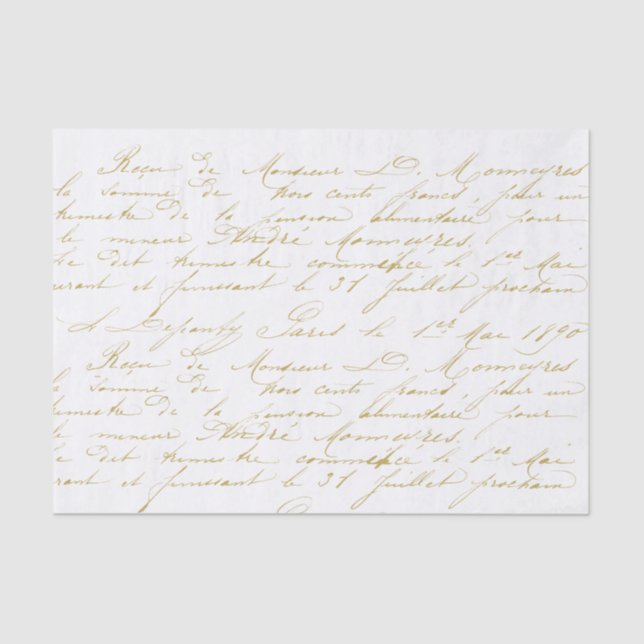 Reçu de Monsieur D. Monneyres
la somme de trois cents francs, pour un
trimestre de la pension alimentaire pour
le mineur André Monneyres.
Le dit trimestre commence le 1er Mai
urant et finissant le 31 Juillet prochain
Paris le 1er Mai 1890
Reçu de Monsieur D. Monneyres
la somme de trois cents francs, pour un
trimestre de la pension alimentaire pour
le mineur André Monneyres.
Le dit trimestre commence le 1er Mai
rant et finissant le 31 Juillet prochain